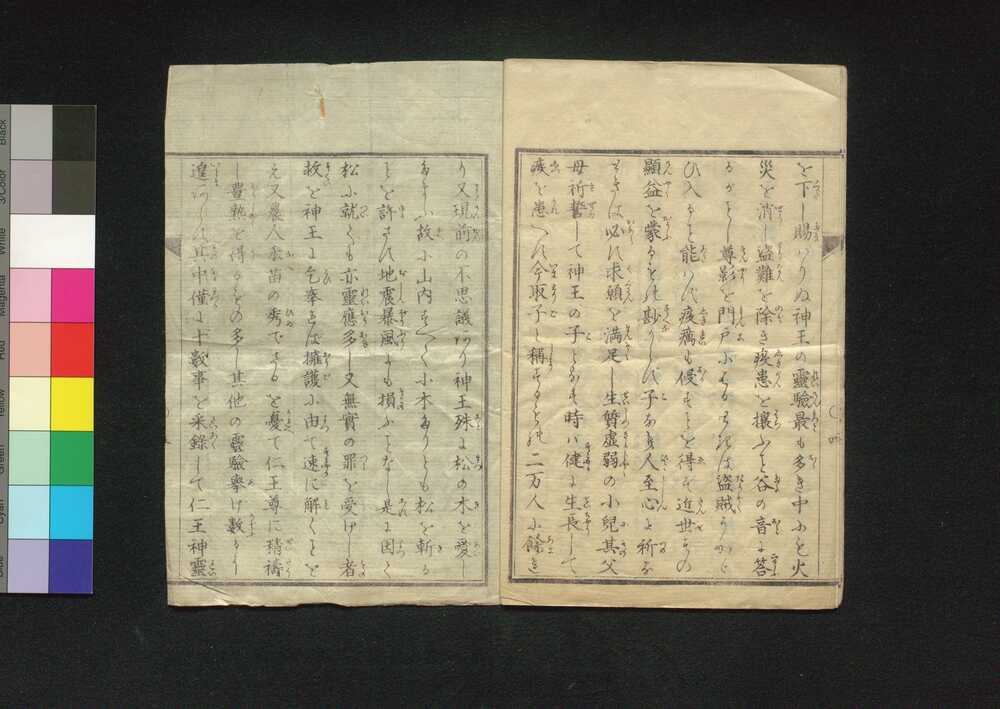 を下し賜ハりぬ神王の靈驗最も多き中ふも火
災を消し盜難を除き疾患を攘ふと谷の音に答
るがごとし尊影を門戸にはるときは盜賊うかゞ
ひ入ると能ハず疫癘も侵すとを得ず近世その
顯益を蒙るもの尠からず子なき人至心に祈る
ときは必ず求願を満足し生質虚弱の小兒其父
母祈誓して神王の子となす時ハ健に生長して
疾を患へず今取子と稱するもの二万人に餘き
り又現前の不思議あり神王殊に松の木を愛し
たまふ故小山内すべて小木たりとも松を斬る
とを許さず地震暴風にも損ふとなし是に因く
松に就くも亦靈應多し又無實の罪を受けし者
救を神王に乞奉るは擁護に由て速に解くとを
え又農人禾苗の秀でざるを憂て仁王尊に稽禱
し豊熟を得るもの多し其他の靈驗擧げ數るに
遑あらず其中僅に十數事を采錄して仁王神靈